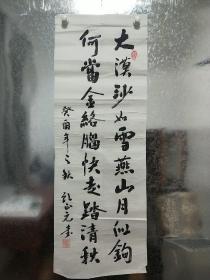 大漠沙如雪燕山月似鉤
何當金絡腦快走踏清秋
癸酉年之秋